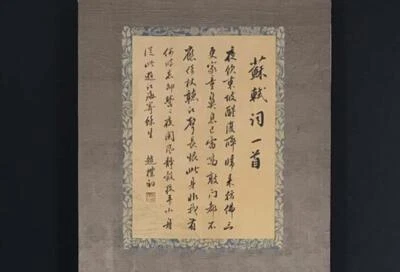 蘇軾词一首
夜饮東坡醒復醉歸来彷彿三
更家童鼻息已雷鸣敲门都不
應倚杖聽江聲長恨此身非我有
何时忘却營々夜阑风静縠紋平小舟
從此逝江海寄餘生 趙樸初